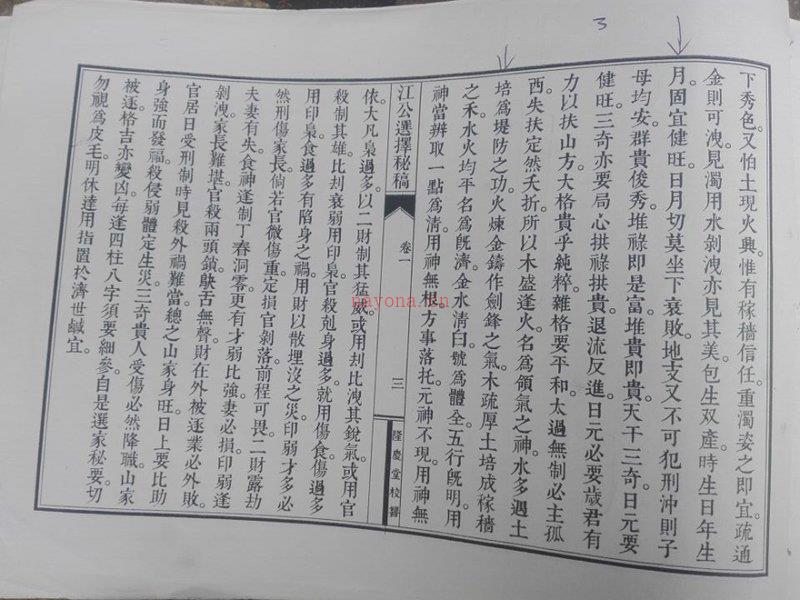 3
下秀色。又怕土現火輿。惟有稼穡信任重濁姿之即宜。疏通
金則可洩。見濁用水剝洩亦見其美。包生双產時生日年生
月。固宜健旺日月切莫坐下衰敗。地支又不可犯刑沖則子
母均安。群貴俊秀堆祿即是富堆貴即貴。天干三奇日元要
健旺。三奇亦要局心拱祿拱貴。退流反進。日元必要歲君有
力以扶山方。大格貴乎純粹雜格要平和。太過無制必主孤
西。失扶定然夭折。所以木盛逢火名為領氣之神。水多遇土
培為堤防之功。火煉金鑄作劍鋒之氣。木疏厚土培成稼穡
之禾。水火均平名為既濟。金水清曰號為體全。五行既明。用
神當辨取一點為清。用神無根方事落托。元神不現。用神無
江公選擇秘稿
卷一
三
隆慶堂校讐
依。大凡梟過多以二財制其猛威。或用刦比洩其銳氣。或用官
殺制其雄。比刦衰弱用印梟。官殺剋身過多。就用傷食。傷過多
用印。梟食過多有陷身之禍。用財以散埋沒之災。印弱才多必
然刑傷家長。倘若官微傷重定損官剝落前程可畏。二財露劫
夫妻有失。食神逢制丁春洞零。更有才弱比強妻必損。印弱逢
剝洩家長難堪。官殺兩頭鎖。鴃舌無聲。財在外被逐業必外敗。
官居日受刑制。時見殺外禍難當。總之山家身旺日上要比助
身強而發福。殺侵弱體定生災。三奇貴人受傷必然降職。山家
被逐格吉亦變凶。每逢四柱八字須要細參。自是選家秘要。切
勿視為皮毛。明休達用指置於濟世鹹宜。
nayona.cn